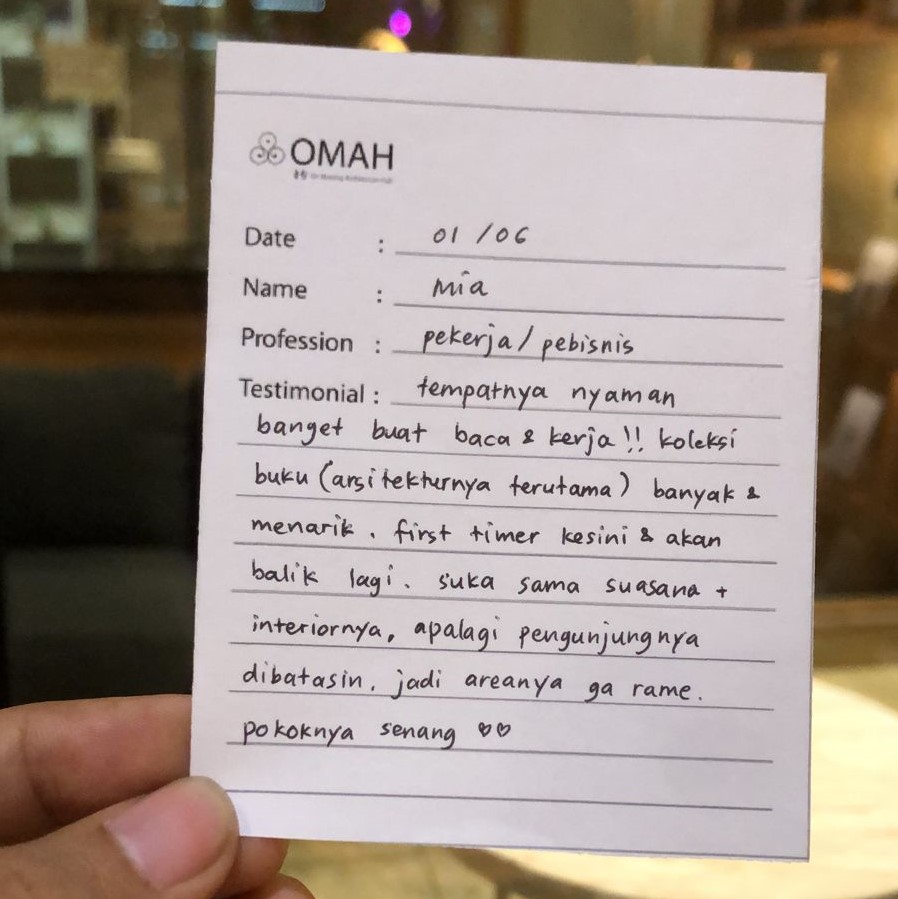 OMAH
Date : 01/06
Name : mia
Profession : pekerja/pebisnis
Testimonial : tempatnya nyaman
banget buat baca & kerja!! koleksi
buku (arsitekturnya terutama) banyak &
menarik. first timer kesini & akan
balik lagi. suka sama suasana +
interiornya, apalagi pengunjungnya
dibatasin, jadi areanya ga rame.
pokoknya senang ♡♡